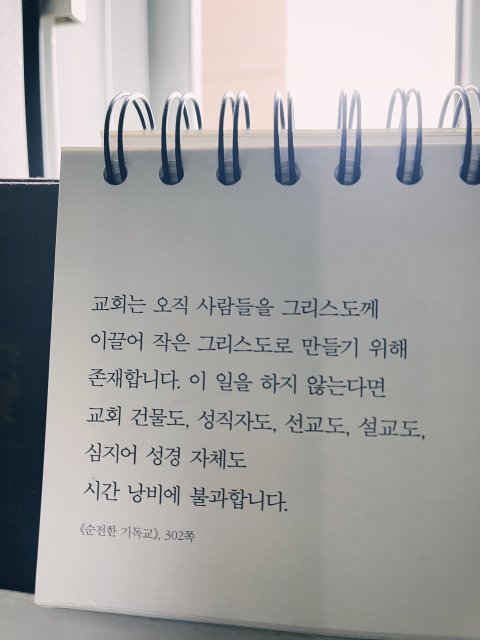 교회는 오직 사람들을 그리스도께
이끌어 작은 그리스도로 만들기 위해
존재합니다. 이 일을 하지 않는다면
교회 건물도, 성직자도, 선교도, 설교도,
심지어 성경 자체도
시간 낭비에 불과합니다.
《순전한 기독교》, 302쪽